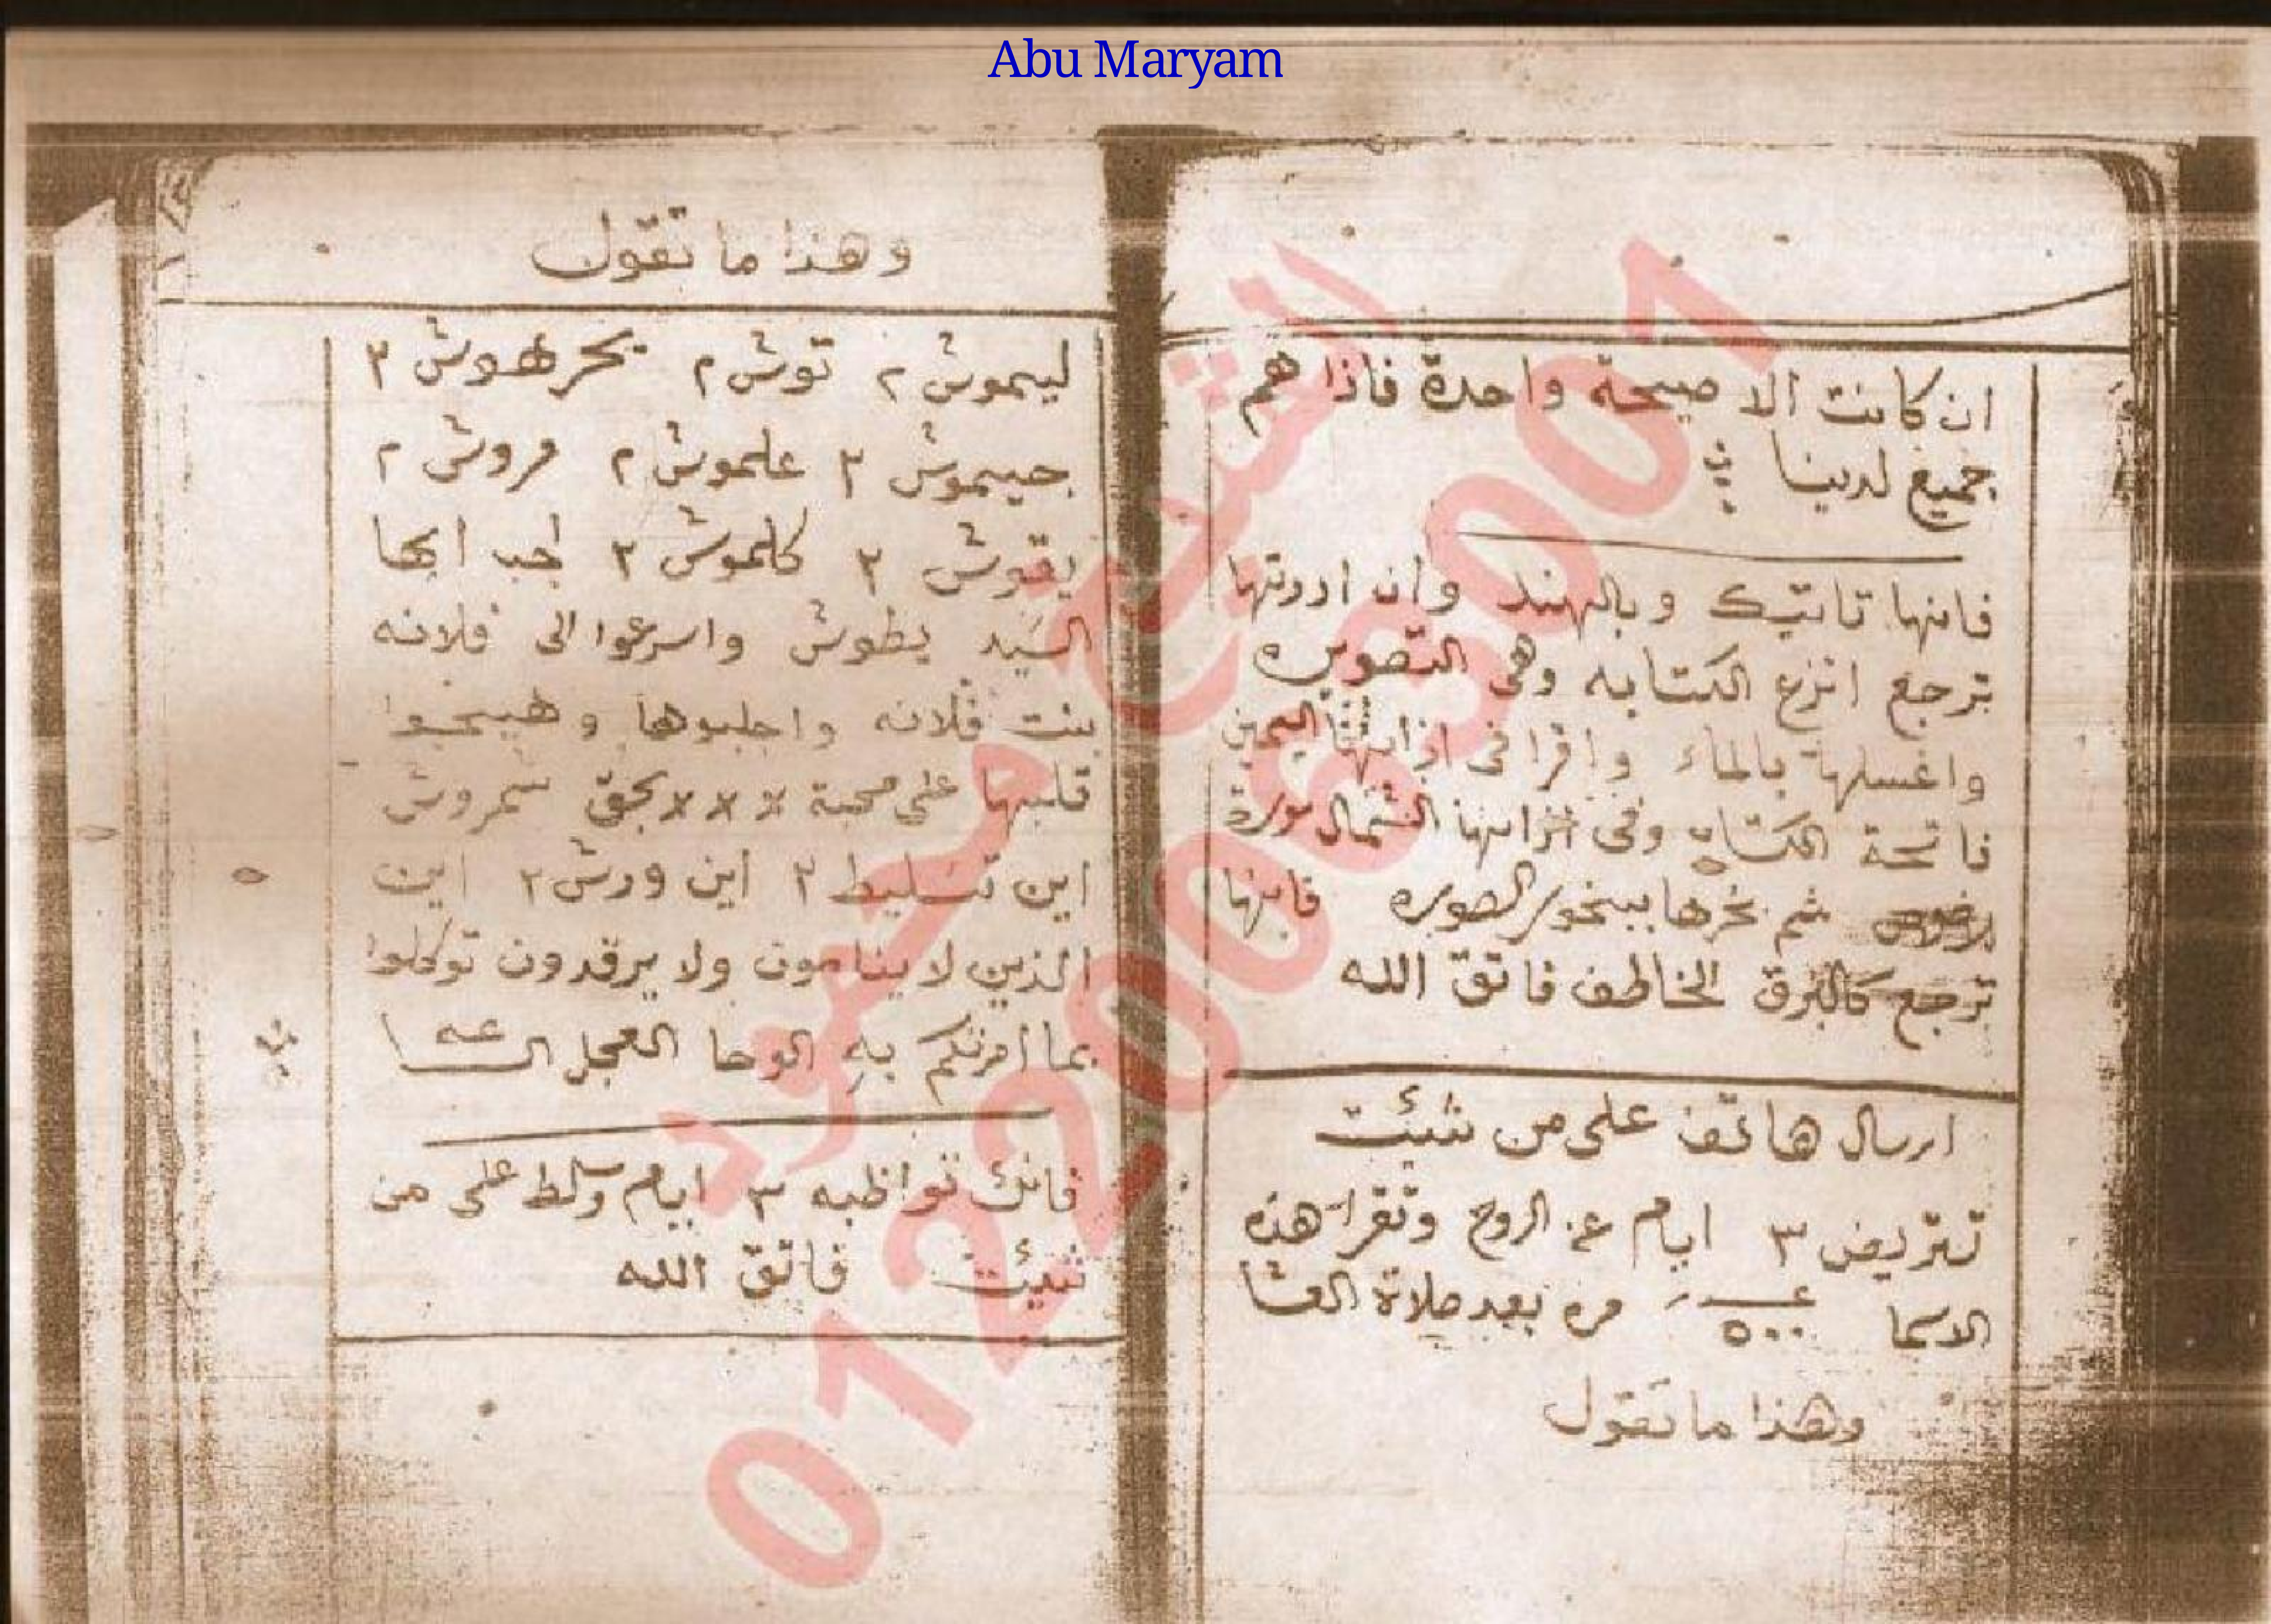 Abu Maryam
ان كانت الا صيحة واحدة فاذا هم
جميع لدينا
فانها تاتيك وبالهند وان اردتها
ترجع انزع الكتابه وهى التصويره
واغسلها بالماء واقرا فى اليمين
فاتحة وفى الشمال سورة
ثم بخرها ببخور الصوره فانها
ترجع كالبرق الخاطف فاتق الله
ارسال هاتف على من شئت
تتريض ٣ ايام عن الروح وتقرا هذه
الاسما ٥٠٠ مره بعد صلاة العشا
وهذا ما تقول
وهذا ما تقول
ليموش ٢ توش ٢ يحرهوش ٢
جيموش ٢ علموش ٢ مروش ٢
يقوش ٢ كلموش ٢ اجب ايها
السيد يطوش واسرعوا الى فلانه
بنت فلانه واجلبوها وهيجوا
قلبها على محبة × × × بحق سمروش
اين تسليط ٢ اين ورش ٢ اين
الذين لا ينامون ولا يرقدون توكلوا
بما امرتكم به الوحا العجل
فانك تواظبه ٣ ايام وسلط على من
شئت فاتق الله
الشيخ
01220083001